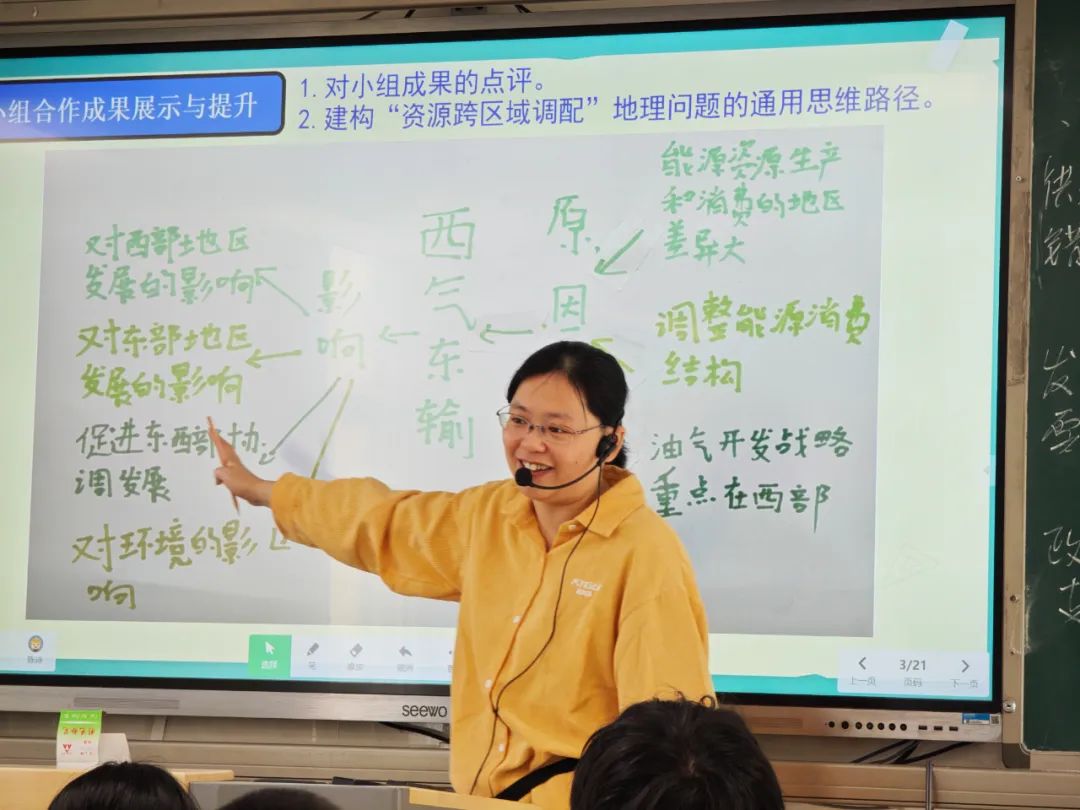 小组合作成果展示与提升
1. 对小组成果的点评。
2. 建构“资源跨区域调配”地理问题的通用思维路径。
西气东输
原因
能源资源生产
和消费的地区
差异大
调整能源消费
结构
油气开发战略
重点在西部
影响
对西部地区
发展的影响
对东部地区
发展的影响
促进东西部协
调发展
对环境的影
响
选择
笔
3/21
上一页
页码
下一页
seewo
供
错
发
雪
改